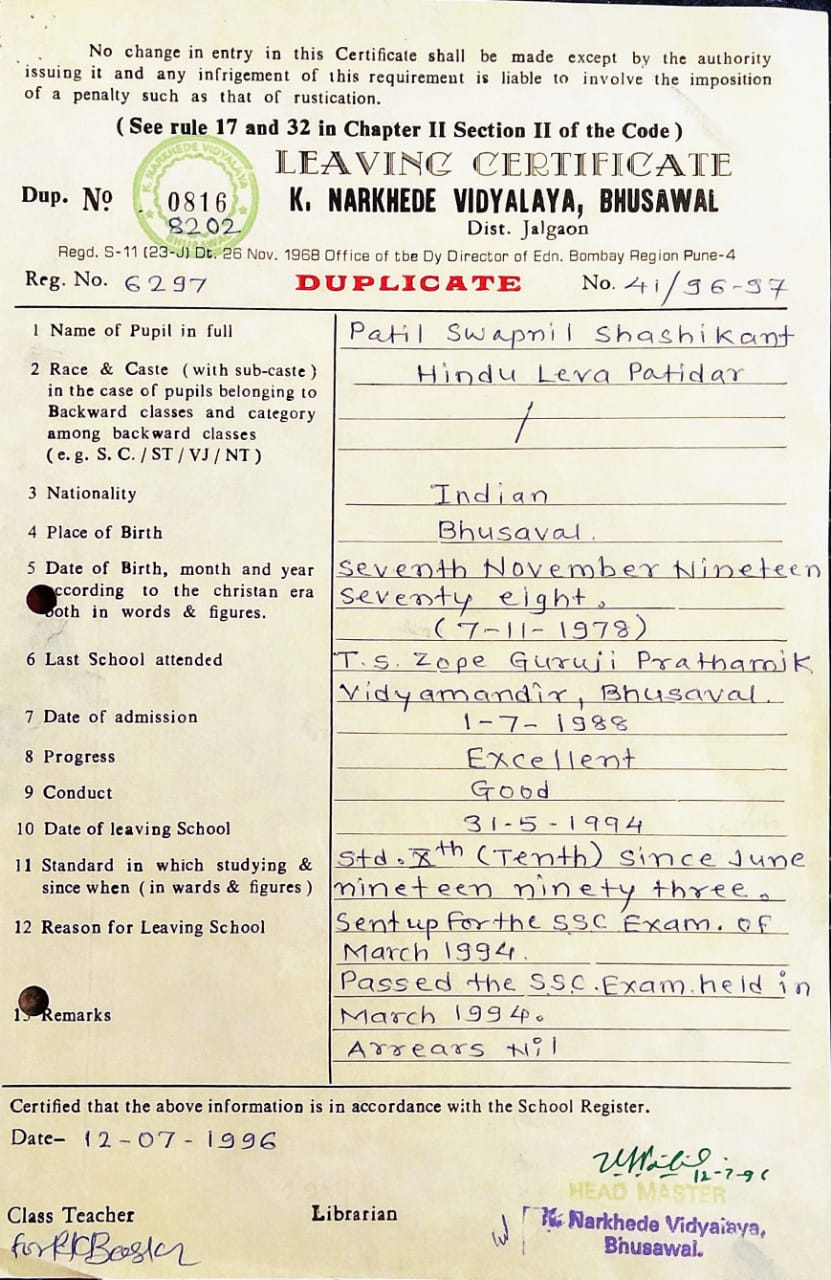 No change in entry in this Certificate shall be made except by the authority
issuing it and any infrigement of this requirement is liable to involve the imposition
of a penalty such as that of rustication.
( See rule 17 and 32 in Chapter II Section II of the Code )
LEAVING CERTIFICATE
K. NARKHEDE VIDYALAYA
BHUSAWAL
Dup. No 0816
8202
K. NARKHEDE VIDYALAYA, BHUSAWAL
Dist. Jalgaon
Regd. S-11 (23-J) Dt. 26 Nov. 1968 Office of tbe Dy Director of Edn. Bombay Region Pune-4
Reg. No. 6297 DUPLICATE No. 41/96-97
1 Name of Pupil in full Patil Swapnil Shashikant
2 Race & Caste ( with sub-caste ) Hindu Leva Patidar
in the case of pupils belonging to
Backward classes and category /
among backward classes
( e. g. S. C. / ST / VJ / NT )
3 Nationality Indian
4 Place of Birth Bhusaval.
5 Date of Birth, month and year Seventh November Nineteen
ccording to the christan era Seventy eight.
oth in words & figures. (7-11-1978)
6 Last School attended T. S. Zope Guruji Prathamik
Vidyamandir, Bhusaval.
7 Date of admission 1-7-1988
8 Progress Excellent
9 Conduct Good
10 Date of leaving School 31-5-1994
11 Standard in which studying & Std. Xth (Tenth) Since June
since when ( in wards & figures ) nineteen ninety three.
12 Reason for Leaving School Sent up for the SSC Exam. of
March 1994.
Passed the S.S.C. Exam. held in
13 Remarks March 1994.
Arrears Nil
Certified that the above information is in accordance with the School Register.
Date– 12-07-1996
12-7-96
HEAD MASTER
Class Teacher Librarian K. Narkhede Vidyalaya,
Bhusawal.
for